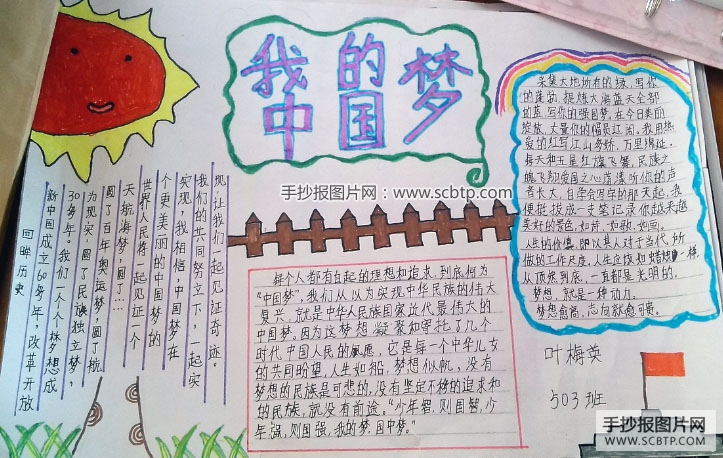 我的
中国梦
手抄报图片网：www.scbtp.com
回眸历史
新中国成立60多年，改革开放
30多年。我们一个个梦想成
为现实，圆了民族独立梦，
圆了百年奥运梦，圆了航
天航海梦，圆了…
世界人民将一起见证一个
个更美丽的中国梦的
实现，我相信，中国梦在
我们的共同努力之下，一起实
现，让我们一起见证奇迹。
每个人都有自己的理想和追求，到底何为
“中国梦”，我们从以为实现中华民族的伟大
复兴，就是中华人民族国家近代最伟大的
中国梦。因为这梦想凝聚和寄托了几个
时代中国人民的夙愿，它是每一个中华儿女
的共同盼望，人生如船，梦想似帆，没有
梦想的民族是可悲的，没有坚定不移的追求和
的民族，就没有前途。“少年智，则国智，少
年强，则国强，我的梦国中梦。”
采集大地所有的绿，写你
的蓬勃，提炼大海蓝天全部
的蓝，写你的强国梦。在今日美丽
绽放，丈量你的幅员辽阔。我用热
爱的红写江山多娇，万里绵延。
每天和五星红旗飞舞，民族之
魂飞翔爱国之心荡漾听你的声
音长大，自学会写字的那天起，我
便挺拔成一支笔记录你越来越
美好的景色，如诗，如歌，如画。
人生的价值，即以其人对于当代，所
做的工作尺度。人生应该如蜡烛一样，
从顶燃到底，一直都是光明的。
梦想，就是一种动力。
梦想愈高，志向就愈可贵。
叶梅英
503班
手抄报图片网
WWW.SCBTP.COM